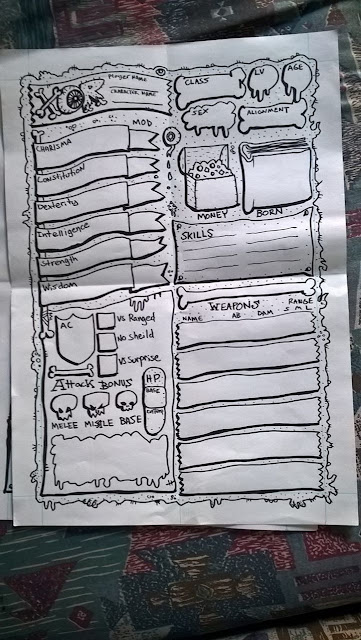 Player Name
CHARACTER NAME
MOD
CHARISMA
Constitution
Dexterity
Intelligence
Strength
Wisdom
CLASS
LV
AGE
SEX
ALIGNMENT
MONEY
BORN
SKILLS
AC
Vs Ranged
No Sheild
Vs Surprise
Attack BONUS
MELEE MISSLE BASE
HP
BASE
WEAPONS
NAME AB DAM RANGE
S M L